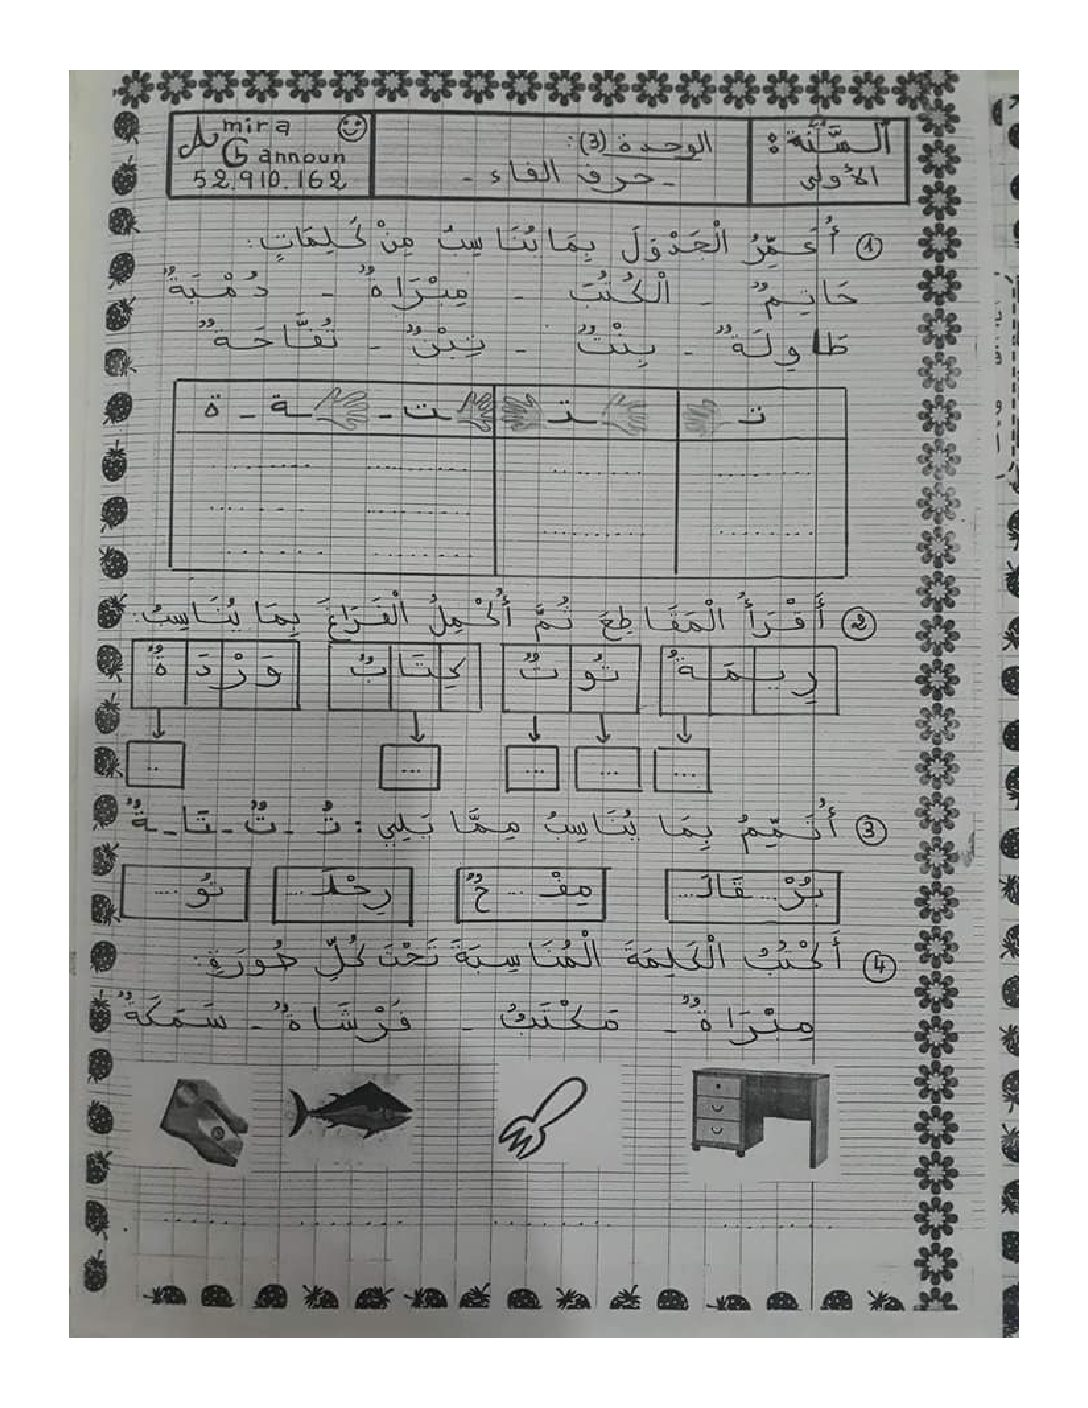 السَّنة:
الأولى
الوحدة (3):
- حرف التاء -
Amira
Gannoun
52.910.162
① أُعَمِّرُ الْجَدْوَلَ بِمَا يُنَاسِبُ مِنْ كَلِمَاتٍ:
حَاتِمٌ - اُكْتُبْ - مِبْرَاةٌ - دُمْيَةٌ
طَاوِلَةٌ - بِنْتٌ - تِبْنٌ - تُفَّاحَةٌ
تـ ـتـ ـت - ـة - ة
② أَقْرَأُ الْمَقَاطِعَ ثُمَّ أُكْمِلُ الْفَرَاغَ بِمَا يُنَاسِبُ:
رِ يـ مَـ ةُ تُو تٌ كِـ تَا بٌ وَ رْ دَ ةٌ
... ... ... ... ..
③ أُتَمِّمُ بِمَا يُنَاسِبُ مِمَّا يَلِي: تُ - تٌ - تَا - ـةٌ
بُرْ...قَالَ... مِفْـ...حٌ رِحْلَـ... تُو...
④ أَكْتُبُ الْكَلِمَةَ الْمُنَاسِبَةَ تَحْتَ كُلِّ صُورَةٍ:
مِبْرَاةٌ - مَكْتَبٌ - فُرْشَاةٌ - سَمَكَةٌ